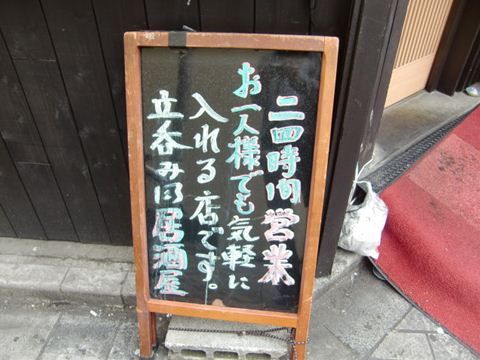 二四時間営業
お一人様でも気軽に
入れる店です。
立呑み居酒屋